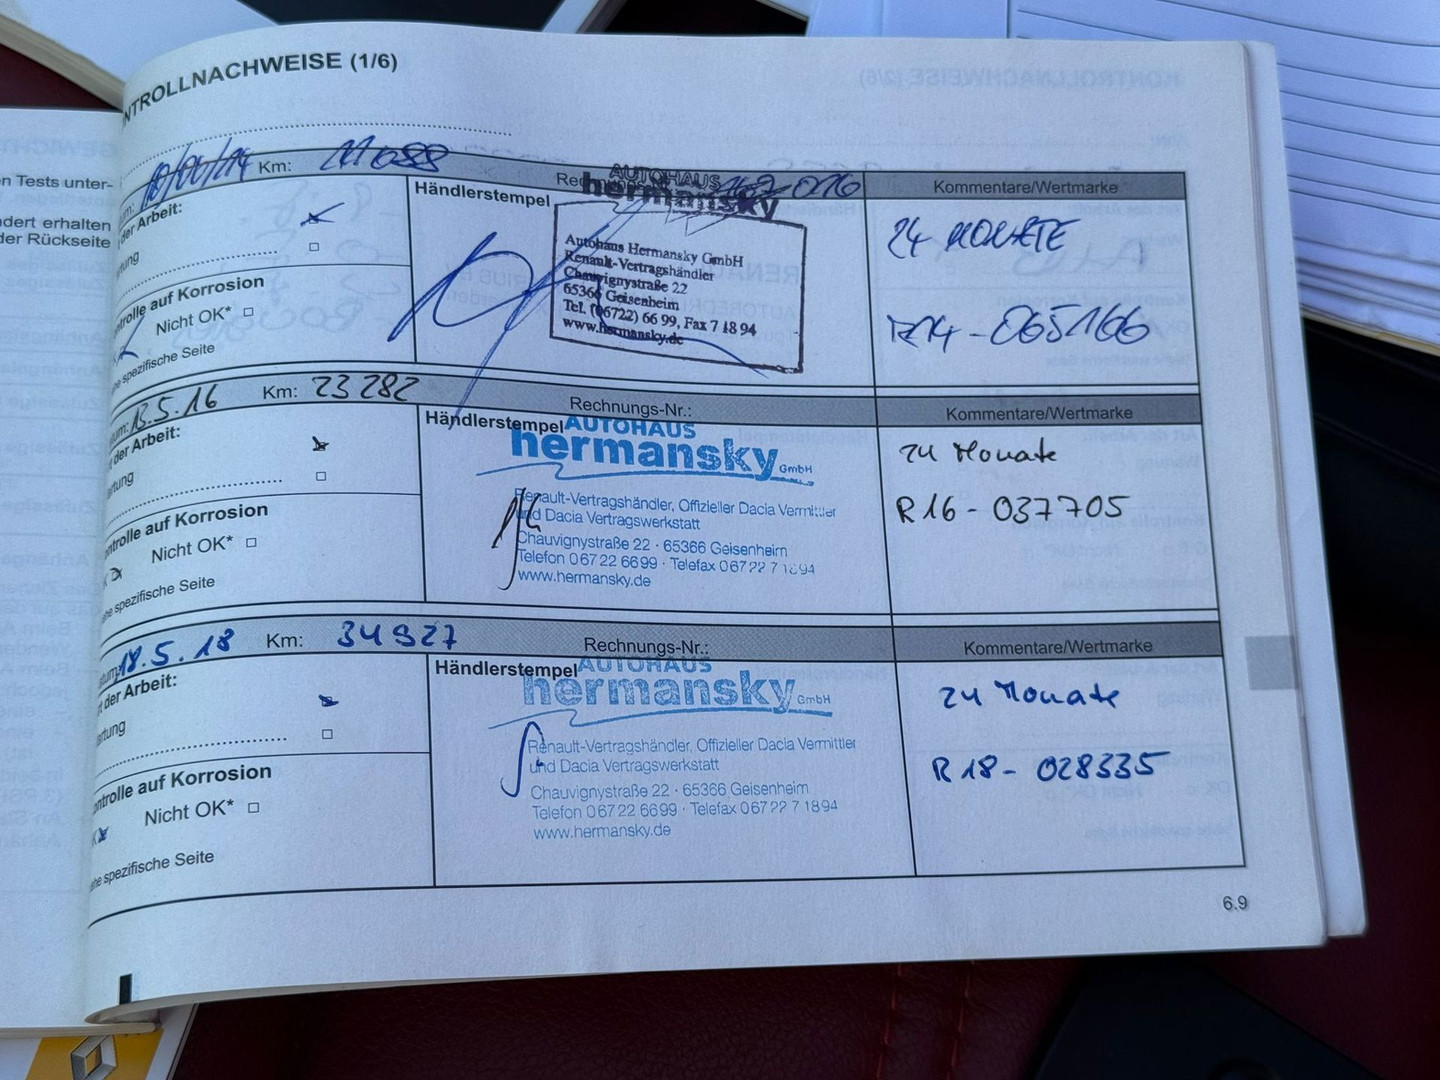 NTROLLNACHWEISE (1/6)
Km: 11 088
Händlerstempel
AUTOHAUS
hermansky
Kommentare/Wertmarke
der Arbeit:
rtung
ntrolle auf Korrosion
Nicht OK*
he spezifische Seite
Autohaus Hermansky GmbH
Renault-Vertragshändler
Chauvignystraße 22
65366 Geisenheim
Tel. (06722) 66 99, Fax 7 18 94
www.hermansky.de
24 MONATE
R14-065166
13.5.16 Km: 23 282
Rechnungs-Nr.:
Kommentare/Wertmarke
der Arbeit:
rtung
ntrolle auf Korrosion
Nicht OK*
he spezifische Seite
Händlerstempel
AUTOHAUS
hermansky GmbH
Renault-Vertragshändler, Offizieller Dacia Vermittler
und Dacia Vertragswerkstatt
Chauvignystraße 22 · 65366 Geisenheim
Telefon 0 67 22 66 99 · Telefax 0 67 22 7 18 94
www.hermansky.de
24 Monate
R16-037705
18.5.18 Km: 34927
Rechnungs-Nr.:
Kommentare/Wertmarke
der Arbeit:
rtung
ntrolle auf Korrosion
Nicht OK*
he spezifische Seite
Händlerstempel
AUTOHAUS
hermansky GmbH
Renault-Vertragshändler, Offizieller Dacia Vermittler
und Dacia Vertragswerkstatt
Chauvignystraße 22 · 65366 Geisenheim
Telefon 0 67 22 66 99 · Telefax 0 67 22 7 18 94
www.hermansky.de
24 Monate
R18-028335
6.9
n Tests unter-
ndert erhalten
der Rückseite